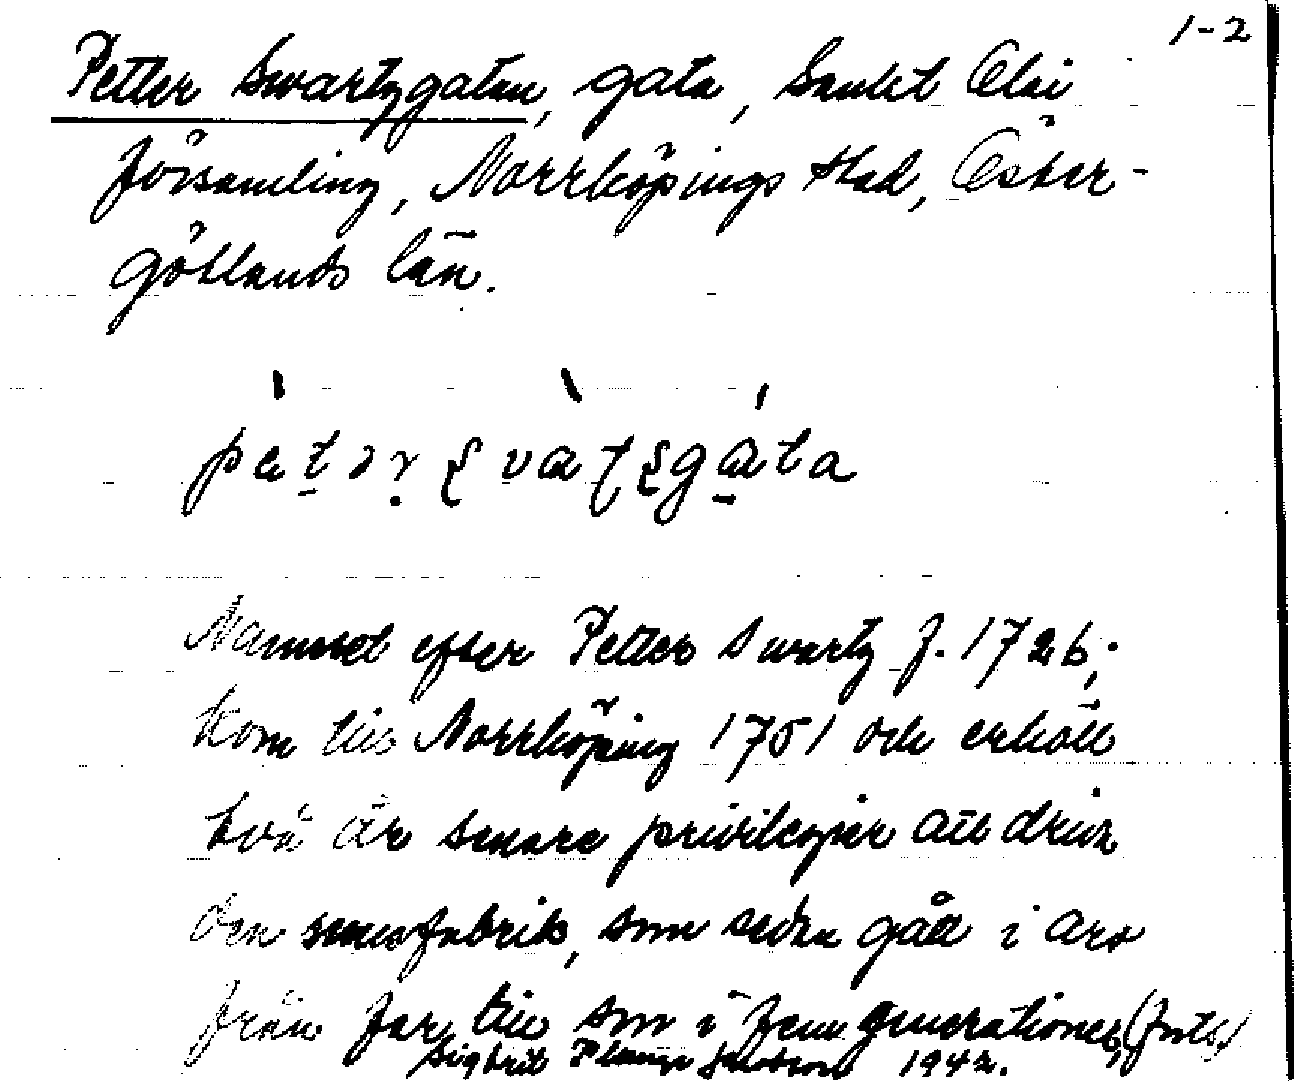 1-2
Petter Swartzgatan, gata, Sankt Olai
församling, Norrköpings stad, Öster-
götlands län.
Namnet efter Petter Swartz f. 1726;
kom till Norrköping 1751 och erhöll
två år senare privilegier att driva
den snusfabrik, som sedan gått i arv
från far till son i fem generationer, (forts.)
Sigbrit Plænge Jacobson 1942.